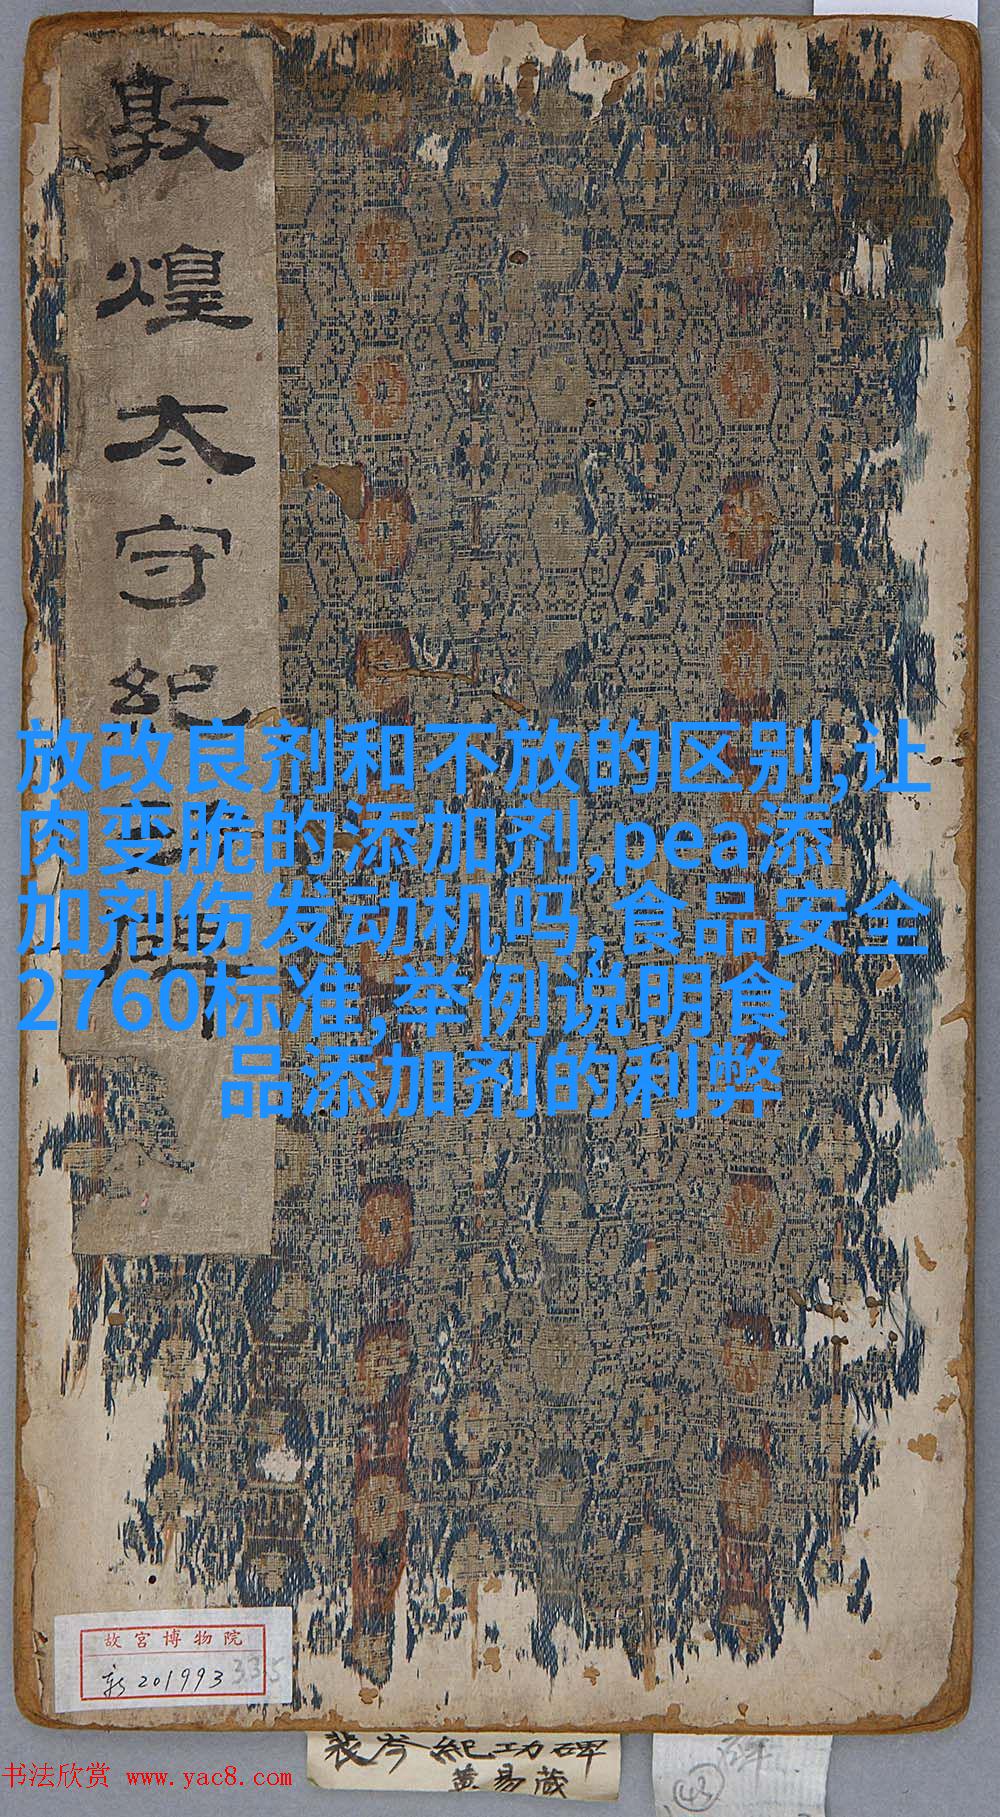 敦煌太守紀
放改良剂和不放的区别,让
肉变脆的添加剂,pea添
加剂伤发动机吗,食品安全
2760标准,举例说明食
品添加剂的利弊
故宮博物院
新201993 335
裴岑紀功碑
黄易藏
43
书法欣赏 www.yac8.com